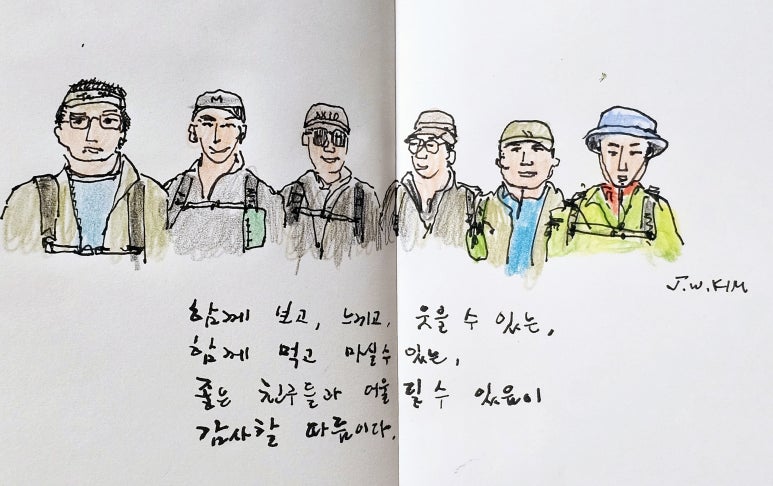 M
AKID
J.W.KIM
함께 보고, 느끼고, 웃을 수 있는,
함께 먹고 마실수 있는,
좋은 친구들과 어울릴 수 있음이
감사할 따름이다.